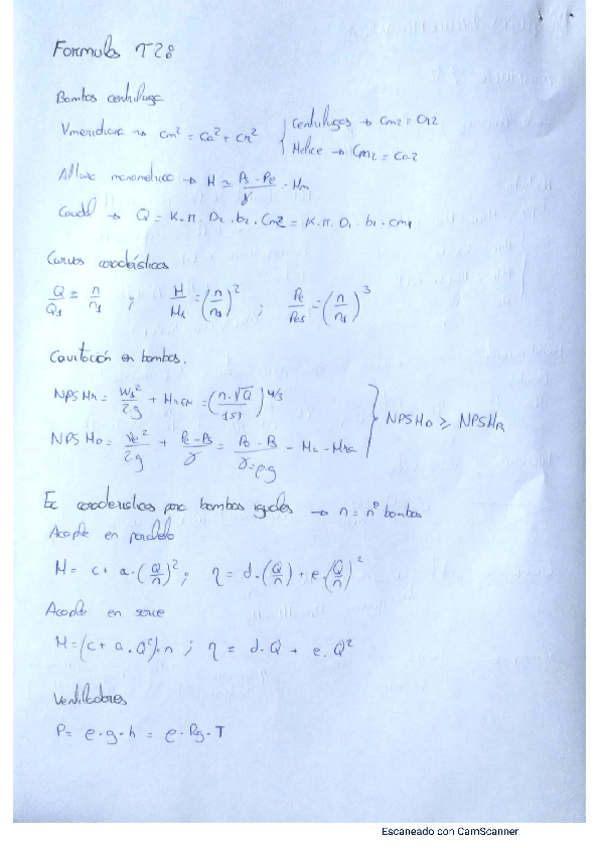 Formulas T28
Bombas centrifuga
Vmeridiana → cm² = ca² + cr² { Centrifugas → Cm2 = Cr2
Helice → Cm2 = Ca2
Altura manometrica → H =
Caudal → Q = K.π.D2.b2.Cm2 = K.π.D1.b1.cm1
Curvas caracteristicas
Q/Q1 = n/n1 ; H/H1 = (n/n1)² ; Pe/Pe1 = (n/n1)³
Cavitación en bombas.
NPSHr = W1²/2.g + = (n.√Q/151)^4/3
NPSHD = Ve²/2.g + = - Ha -
} NPSHD ⩾ NPSHR
Ec caracteristicas para bombas iguales → n = nº bombas
Acople en paralelo
H = c + a.(Q/n)² ; η = d.(Q/n) + e.(Q/n)²
Acople en serie
H = (c + a.Q²).n ; η = d.Q + e.Q²
Ventiladores
P = e.g.h = e.Rg.T
Escaneado con CamScanner